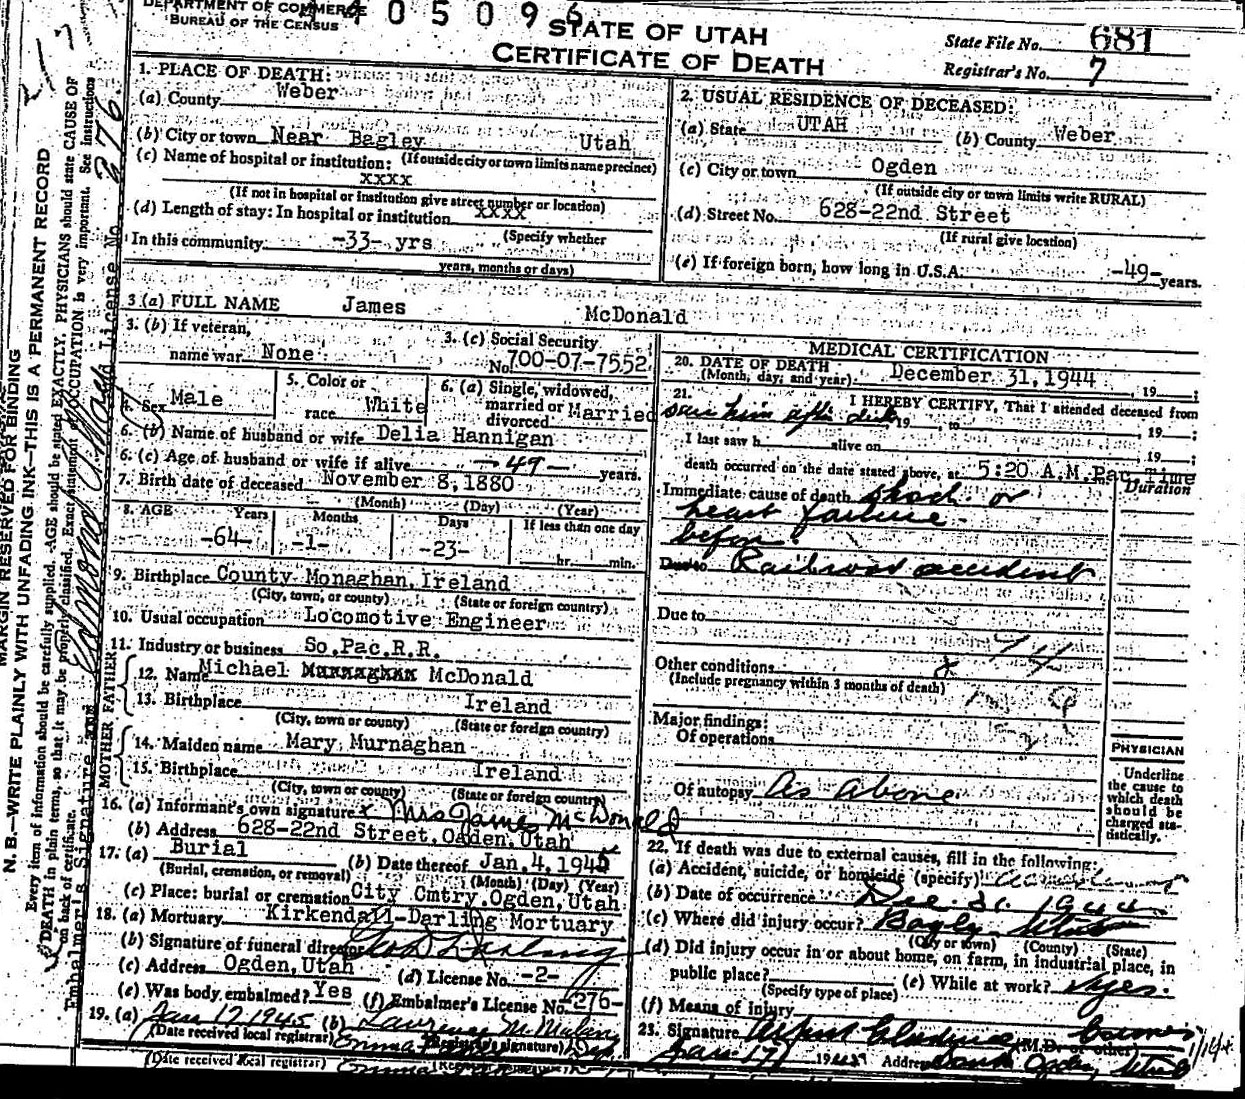 DEPARTMENT OF COMMERCE
BUREAU OF THE CENSUS
405096
STATE OF UTAH
CERTIFICATE OF DEATH
State File No. 681
Registrar's No. 7
MARGIN RESERVED FOR BINDING
N. B.—WRITE PLAINLY WITH UNFADING INK—THIS IS A PERMANENT RECORD
Every item of information should be carefully supplied. AGE should be stated EXACTLY. PHYSICIANS should state CAUSE OF
DEATH in plain terms, so that it may be properly classified. Exact statement of OCCUPATION is very important. See instructions
on back of certificate.
Embalmer's Signature
License No. 276
1. PLACE OF DEATH:
(a) County Weber
(b) City or town Near Bagley Utah
(If outside city or town limits name precinct)
(c) Name of hospital or institution:
xxxx
(If not in hospital or institution give street number or location)
(d) Length of stay: In hospital or institution xxxx
(Specify whether
In this community -33- yrs
years, months or days)
2. USUAL RESIDENCE OF DECEASED:
(a) State UTAH (b) County Weber
(c) City or town Ogden
(If outside city or town limits write RURAL)
(d) Street No. 628-22nd Street
(If rural give location)
(e) If foreign born, how long in U.S.A. -49- years.
3 (a) FULL NAME James McDonald
3. (b) If veteran,
name war None
3. (c) Social Security
No. 700-07-7552
4. Sex Male
5. Color or
race White
6. (a) Single, widowed,
married or
divorced Married
6. (b) Name of husband or wife Delia Hannigan
6. (c) Age of husband or wife if alive -49- years.
7. Birth date of deceased November 8, 1880
(Month) (Day) (Year)
8. AGE Years Months Days If less than one day
-64- -1- -23- hr. min.
9. Birthplace County Monaghan, Ireland
(City, town, or county) (State or foreign country)
10. Usual occupation Locomotive Engineer
11. Industry or business So. Pac. R.R.
FATHER
12. Name Michael McDonald
13. Birthplace Ireland
(City, town or county) (State or foreign country)
MOTHER
14. Maiden name Mary Murnaghan
15. Birthplace Ireland
(City, town or county) (State or foreign country)
16. (a) Informant's own signature x Mrs James McDonald
(b) Address 628-22nd Street, Ogden, Utah
17. (a) Burial (b) Date thereof Jan. 4, 1945
(Burial, cremation, or removal) (Month) (Day) (Year)
(c) Place: burial or cremation City Cmtry. Ogden, Utah
18. (a) Mortuary Kirkendall-Darling Mortuary
(b) Signature of funeral director
(c) Address Ogden, Utah (d) License No. -2-
(e) Was body embalmed? Yes (f) Embalmer's License No. -276-
19. (a) Jan 17 1945 (b) Lawrence M. Malan
(Date received local registrar) (Registrar's signature) Dep.
(Date received local registrar)
MEDICAL CERTIFICATION
20. DATE OF DEATH
(Month, day, and year) December 31, 1944, 19 ;
21. I HEREBY CERTIFY, That I attended deceased from
saw him after death 19 , to , 19 ;
I last saw h alive on , 19 ;
death occurred on the date stated above, at 5:20 A.M. Pac Time
Duration
Immediate cause of death shock or
heart failure
before
Due to Railroad accident
Due to
Other conditions
(Include pregnancy within 3 months of death)
Major findings:
Of operations
Of autopsy As Above
PHYSICIAN
Underline
the cause to
which death
should be
charged sta-
tistically.
22. If death was due to external causes, fill in the following:
(a) Accident, suicide, or homicide (specify)
(b) Date of occurrence Dec. 31. 1944
(c) Where did injury occur? Bagley Utah
(City or town) (County) (State)
(d) Did injury occur in or about home, on farm, in industrial place, in
public place? (e) While at work? yes.
(Specify type of place)
(f) Means of injury
23. Signature
(M.D. or other)
Jan. 17, 19 Address Ogden, Utah